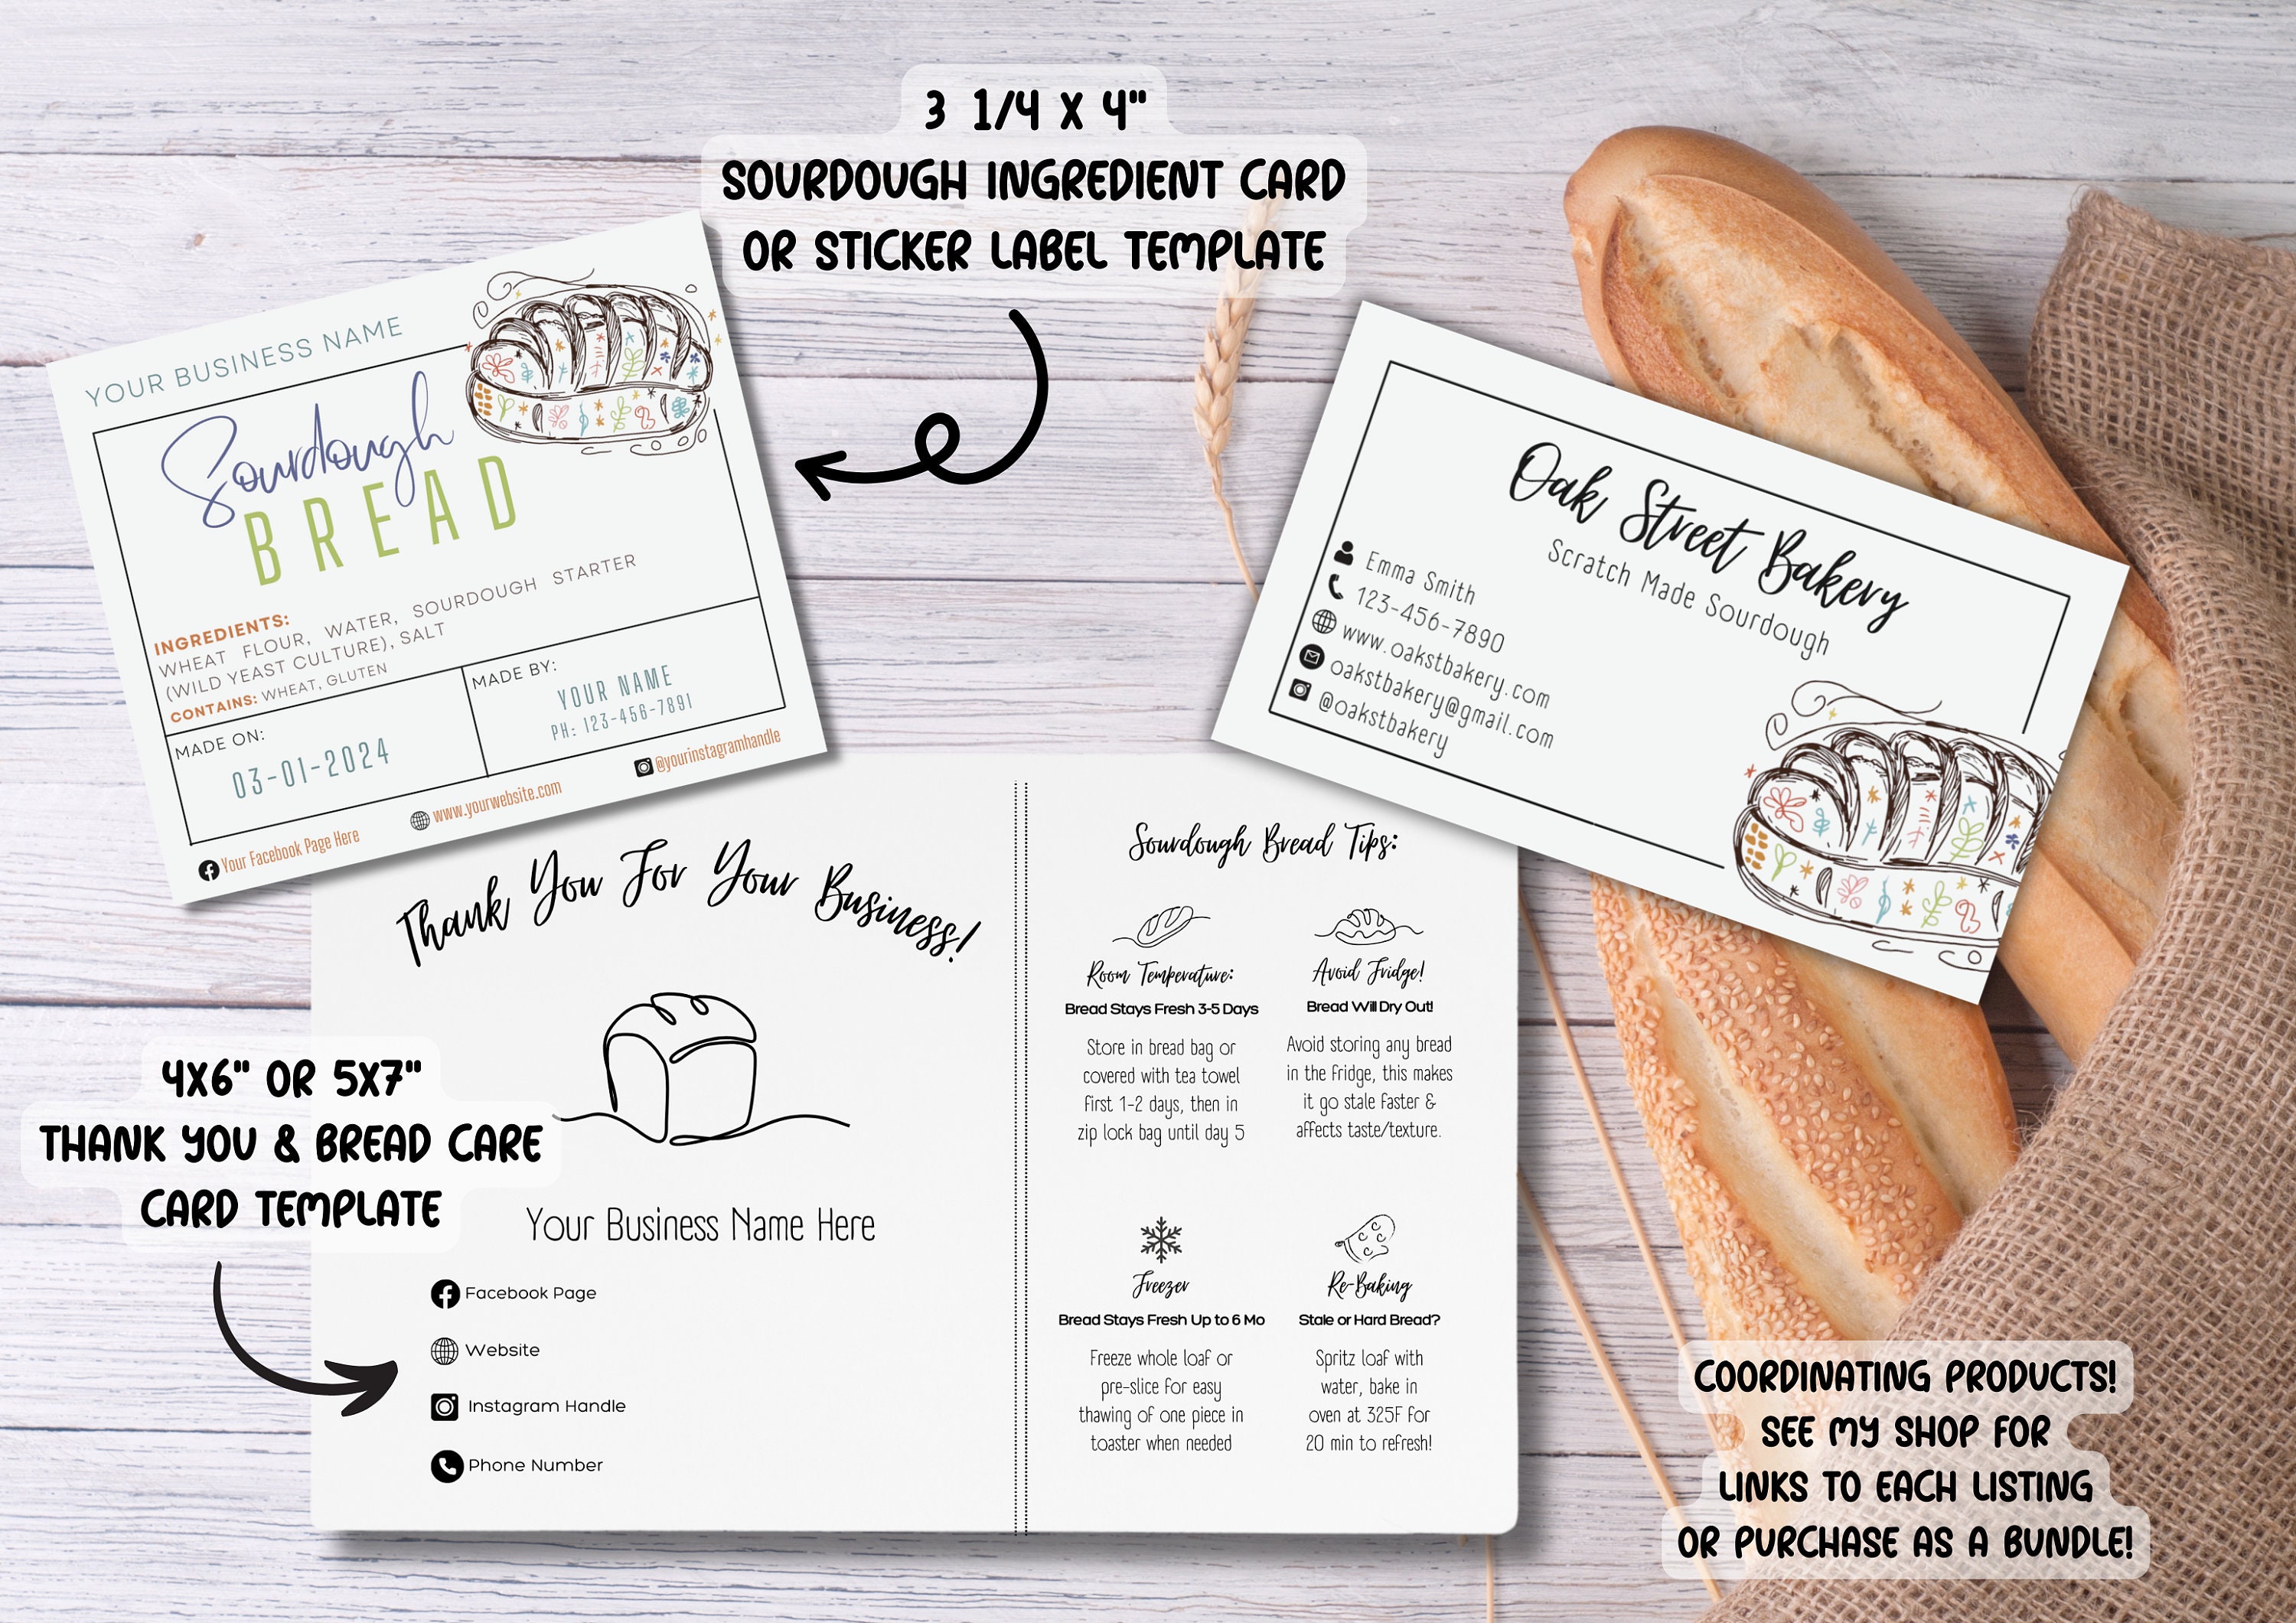 3 1/4 X 4"
SOURDOUGH INGREDIENT CARD
OR STICKER LABEL TEMPLATE
YOUR BUSINESS NAME
Sourdough
BREAD
INGREDIENTS:
WHEAT FLOUR, WATER, SOURDOUGH STARTER
(WILD YEAST CULTURE), SALT
CONTAINS: WHEAT, GLUTEN
MADE ON:
03-01-2024
MADE BY:
YOUR NAME
PH: 123-456-7891
Your Facebook Page Here
www.yourwebsite.com
@yourinstagramhandle
Oak Street Bakery
Scratch Made Sourdough
Emma Smith
123-456-7890
www.oakstbakery.com
oakstbakery@gmail.com
@oakstbakery
4X6" OR 5X7"
THANK YOU & BREAD CARE
CARD TEMPLATE
Thank You For Your Business!
Your Business Name Here
Facebook Page
Website
Instagram Handle
Phone Number
Sourdough Bread Tips:
Room Temperature:
Bread Stays Fresh 3-5 Days
Store in bread bag or
covered with tea towel
first 1-2 days, then in
zip lock bag until day 5
Avoid Fridge!
Bread Will Dry Out!
Avoid storing any bread
in the fridge, this makes
it go stale faster &
affects taste/texture.
Freezer
Bread Stays Fresh Up to 6 Mo
Freeze whole loaf or
pre-slice for easy
thawing of one piece in
toaster when needed
Re-Baking
Stale or Hard Bread?
Spritz loaf with
water, bake in
oven at 325F for
20 min to refresh!
COORDINATING PRODUCTS!
SEE MY SHOP FOR
LINKS TO EACH LISTING
OR PURCHASE AS A BUNDLE!